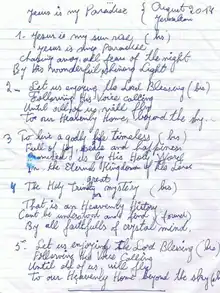 Jesus is my Paradise { August 2018
Jerusalem
1. Jesus is my sun rise, (bis)
Jesus is my Paradise
Chasing away all fear of the night
By His wonderful shining light
2. Let us enjoying the Lord Blessing (bis)
Following His Voice Calling
Until all of us, will fly
To our Heavenly Home beyond the sky.
3 To live a godly life timeless (bis)
Full of joy, peace and happiness
Promised us by His Holy Word
In the Eternal Kingdom of the Lord
great
4 The Holy Trinity mystery (bis)
That is an Heavenly History
Cant be understood and find (found)
By all faithfulls of crystal mind.
5. Let us enjoying the Lord Blessing (bis)
Following His Voice Calling
Until all of us, will fly
To our Heavenly Home beyond the sky